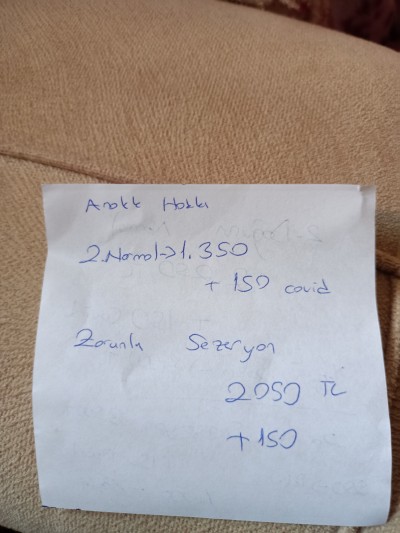 Anakk Hakkı
2.Normal→1.350
+ 150 covid
Zorunlu Sezeryan
2050 TL
+150